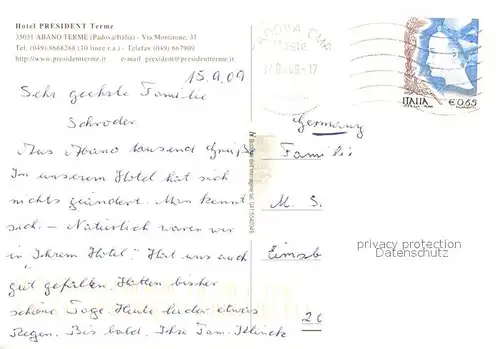 Hotel PRESIDENT Terme
35031 ABANO TERME (Padova/Italia) - Via Montirone, 31
Tel. (049) 8668288 (10 linee r.a.) - Telefax (049) 667909
http://www.presidentterme.it e-mail president@presidentterme.it
15.9.09
Sehr geehrte Familie
Schröder
Aus Abano tausend Grüße
In unserem Hotel hat sich
nichts geändert. Man kennt
sich. – Natürlich waren wir
in "Ihrem Hotel." Hat uns auch
gut gefallen. Hatten bisher
schöne Tage. Heute leider etwas
Regen. Bis bald. Ihre Fam.
PADOVA CMP
ITALIA
€ 0,65
Germany
Familie
M. S.
Eimsb
20
privacy protection
Datenschutz